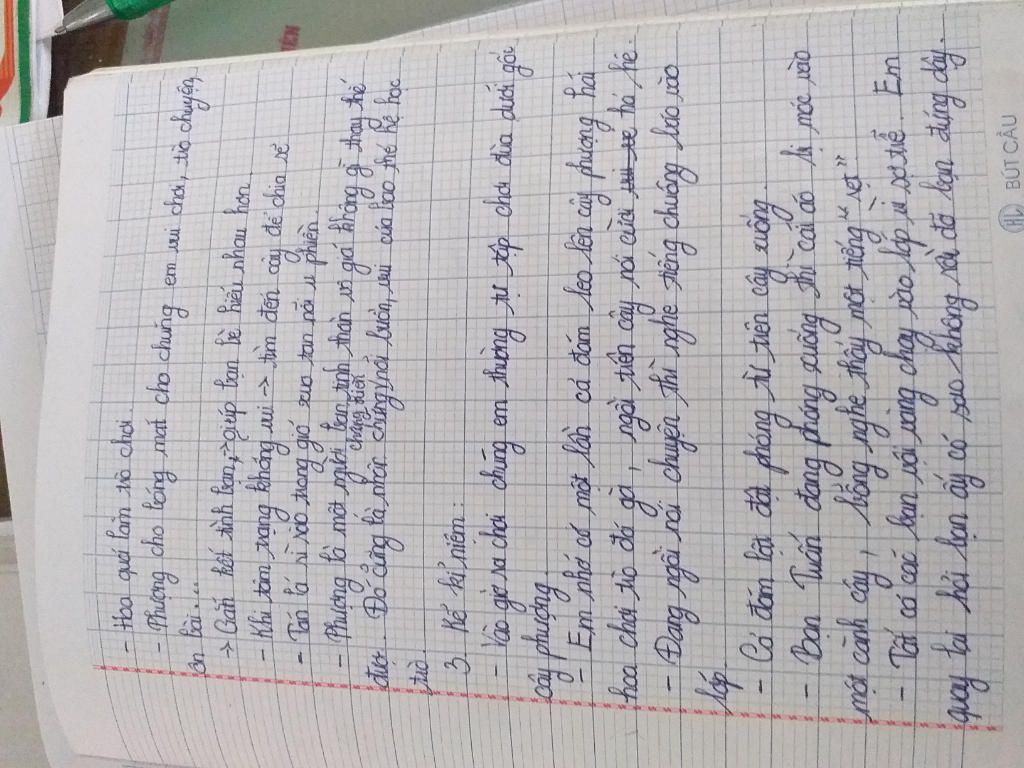 - Hoa quả làm trò chơi.
- Phượng cho bóng mát cho chúng em vui chơi, trò chuyện,
ôn bài....
-> Gắn kết tình bạn, -> giúp bạn bè hiểu nhau hơn.
- Khi tâm trạng không vui -> tìm đến cây để chia sẻ
- Tán lá rì rào trong gió xua tan nỗi u phiền.
- Phượng là một người bạn tinh thần vô giá không gì thay thế
được. Đó cũng là nhân chứng chứng kiến nỗi buồn, vui của bao thế hệ học
trò.
3. Kể kỉ niệm:
- Vào giờ ra chơi chúng em thường tụ tập chơi đùa dưới gốc
cây phượng.
- Em nhớ có một lần cả đám leo lên cây phượng hái
hoa chơi trò đá gà, ngồi trên cây nói cười vui vẻ hả hê.
- Đang ngồi nói chuyện thì nghe tiếng chuông reo vào
lớp.
- Cả đám bật đật phóng từ trên cây xuống.
- Bạn Tuấn đang phóng xuống thì cái áo bị móc vào
một cành cây, bỗng nghe thấy một tiếng "xẹt"
- Tất cả các bạn vội vàng chạy vào lớp vì sợ trễ. Em
quay lại hỏi bạn ấy có sao không và đỡ bạn đứng dậy.
BÚT CẦU